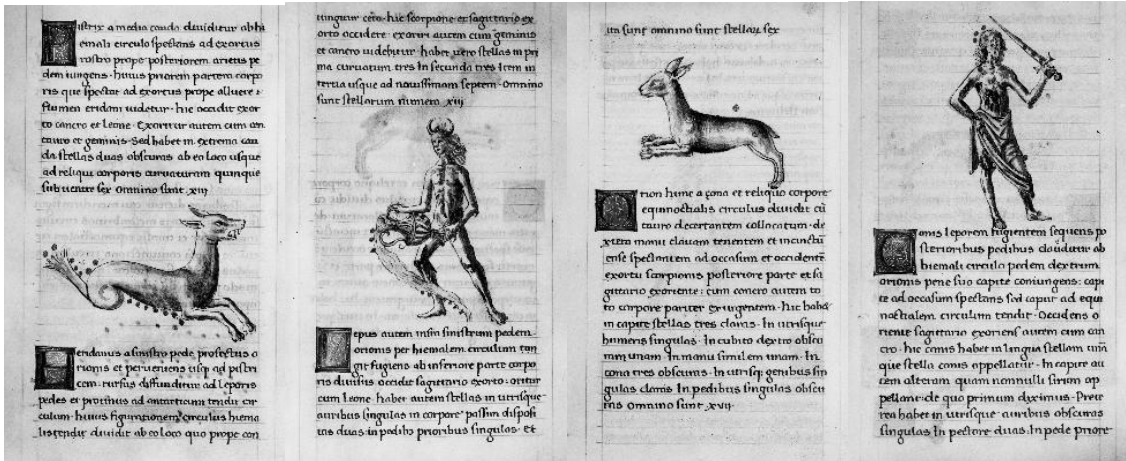 istrix a media cauda diuiditur ab hi
emali circulo spectans ad exortus
rostro prope posteriorem arietis pe
dem iungens · huius priorem partem corpo
ris que spectat ad exortus prope alluere
flumen eridani uidetur · hic occidit exor
to cancro et leone · Exoritur autem cum cen
tauro et geminis · Sed habet in extrema cau
da stellas duas obscuras ab eo loco usque
ad reliqui corporis curuaturam quinque
sub uentre sex omnino sunt xiii
eridanus a sinistro pede profectus o
rionis et perueniens usq ad pistri
cem · rursus diffunditur ad leporis
pedes et protinus ad antarticum tendit cir
culum · huius figurationem circulus hiema
lis tendit diuidit ab eo loco quo prope con
iungitur ceto · hic scorpione et sagittario ex
orto occidere · exoriri autem cum geminis
et cancro uidebitur · habet uero stellas in pri
ma curuatura tres In secunda tres Item in
tertia usque ad nouissimam septem · Omnino
sunt stellarum numero xiii
epus autem infra sinistrum pedem
orionis per hiemalem circulum con
git fugiens ab inferiore parte corpo
ris diuisus occidit sagitario exorto · oritur
cum Leone · habet autem stellas in utrisque
auribus singulas in corpore passim disposi
tas duas · in pedibus prioribus singulas · et
ita sunt omnino sunt stellarum sex
rion hunc a zona et reliquo corpore
equinoctialis circulus diuidit cum
tauro decertantem collocatum · de
xtera manu clauam tenentem et incinctum
ense spectantem ad occasum et occidentem
exortu scorpionis posteriore parte et sa
gittario exoriente : cum cancro autem to
to corpore pariter exurgentem · hic habet
in capite stellas tres claras · In utrisque
humeris singulas · In cubito dextro obscu
ram unam · In manu similem unam · In
zona tres obscuras · In utrisque genibus sin
gulas claras In pedibus singulas obscu
ras Omnino sunt · xvii ·
anis leporem fugientem sequens po
sterioribus pedibus clauditur ab
hiemali circulo pedem dextrum
orionis pene suo capite coniungens : capi
te ad occasum spectans sed caput ad equi
noctialem circulum tendit · Occidens o
riente sagitario exoriens autem cum can
cro · hic canis habet in lingua stellam unam
que stella canis appellatur · In capite au
tem alteram quam nonnulli sirium ap
pellant · de quo primum diximus · Prete
rea habet in utrisque auribus obscuras
singulas In pectore duas · In pede priore